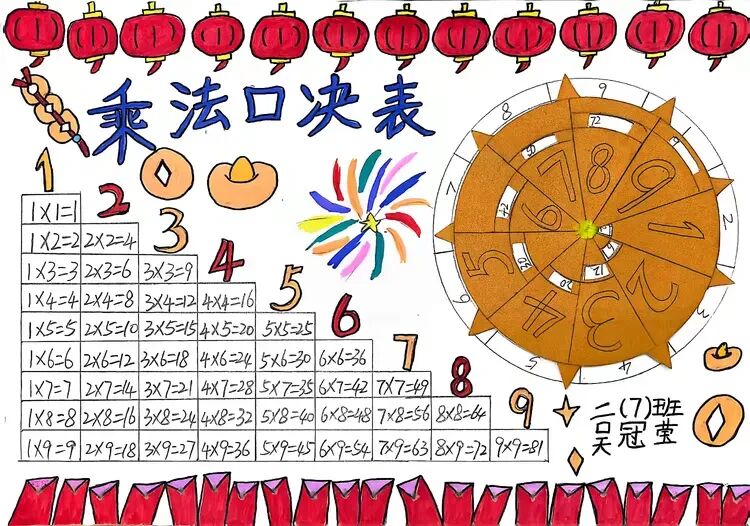 乘法口决表
1 2 3 4 5 6 7 8 9
1×1=1
1×2=2 2×2=4
1×3=3 2×3=6 3×3=9
1×4=4 2×4=8 3×4=12 4×4=16
1×5=5 2×5=10 3×5=15 4×5=20 5×5=25
1×6=6 2×6=12 3×6=18 4×6=24 5×6=30 6×6=36
1×7=7 2×7=14 3×7=21 4×7=28 5×7=35 6×7=42 7×7=49
1×8=8 2×8=16 3×8=24 4×8=32 5×8=40 6×8=48 7×8=56 8×8=64
1×9=9 2×9=18 3×9=27 4×9=36 5×9=45 6×9=54 7×9=63 8×9=72 9×9=81
9
8
1
7
2
6
4
5
72
8
7
9
6
1
5
2
4
3
20
12
二(7)班
吴冠莹